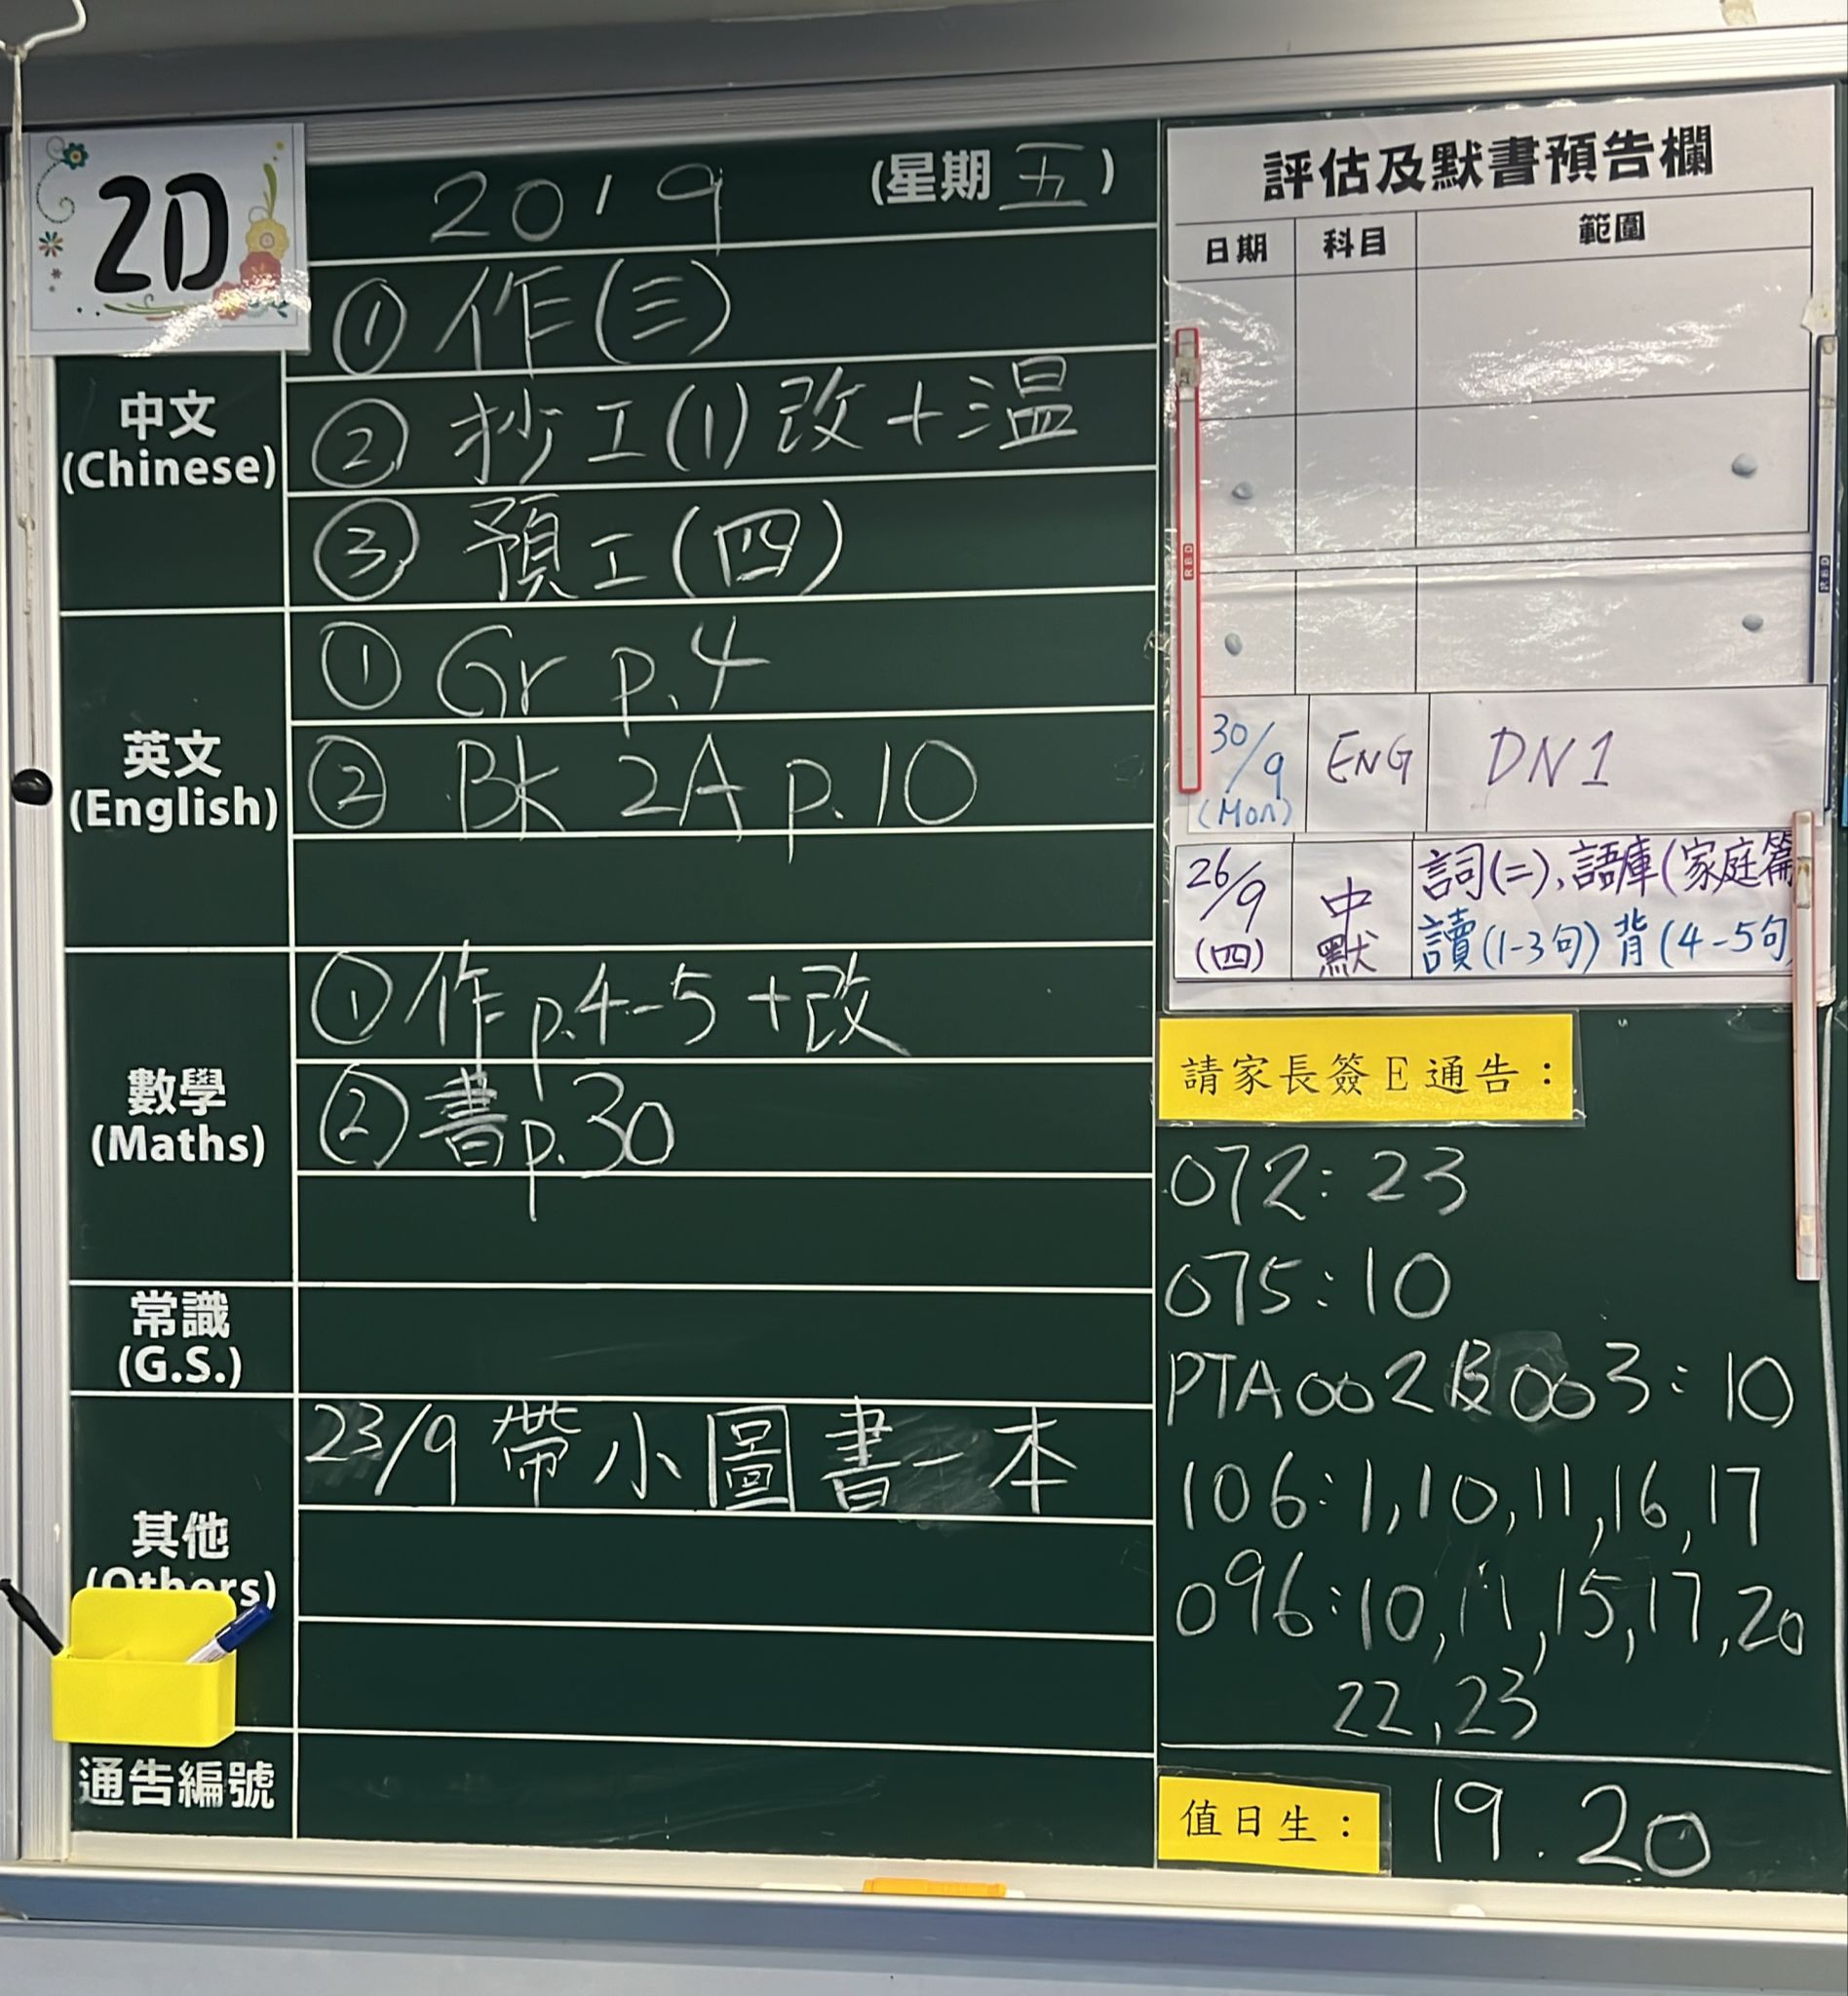 2D
20/9 (星期五)
中文
(Chinese)
① 作(三)
② 抄工(1)改+温
③ 預工(四)
英文
(English)
① Gr p.4
② Bk 2A p.10
數學
(Maths)
① 作 p.4-5 +改
② 書p.30
常識
(G.S.)
其他
(Others)
23/9 帶小圖書一本
通告編號
評估及默書預告欄
日期 科目 範圍
30/9 (Mon) ENG DN1
26/9 (四) 中默 詞(二),語庫(家庭篇
讀(1-3句)背(4-5句)
請家長簽E通告:
072: 23
075: 10
PTA002及003: 10
106: 1, 10, 11, 16, 17
096: 10, 11, 15, 17, 20
22, 23
值日生: 19. 20